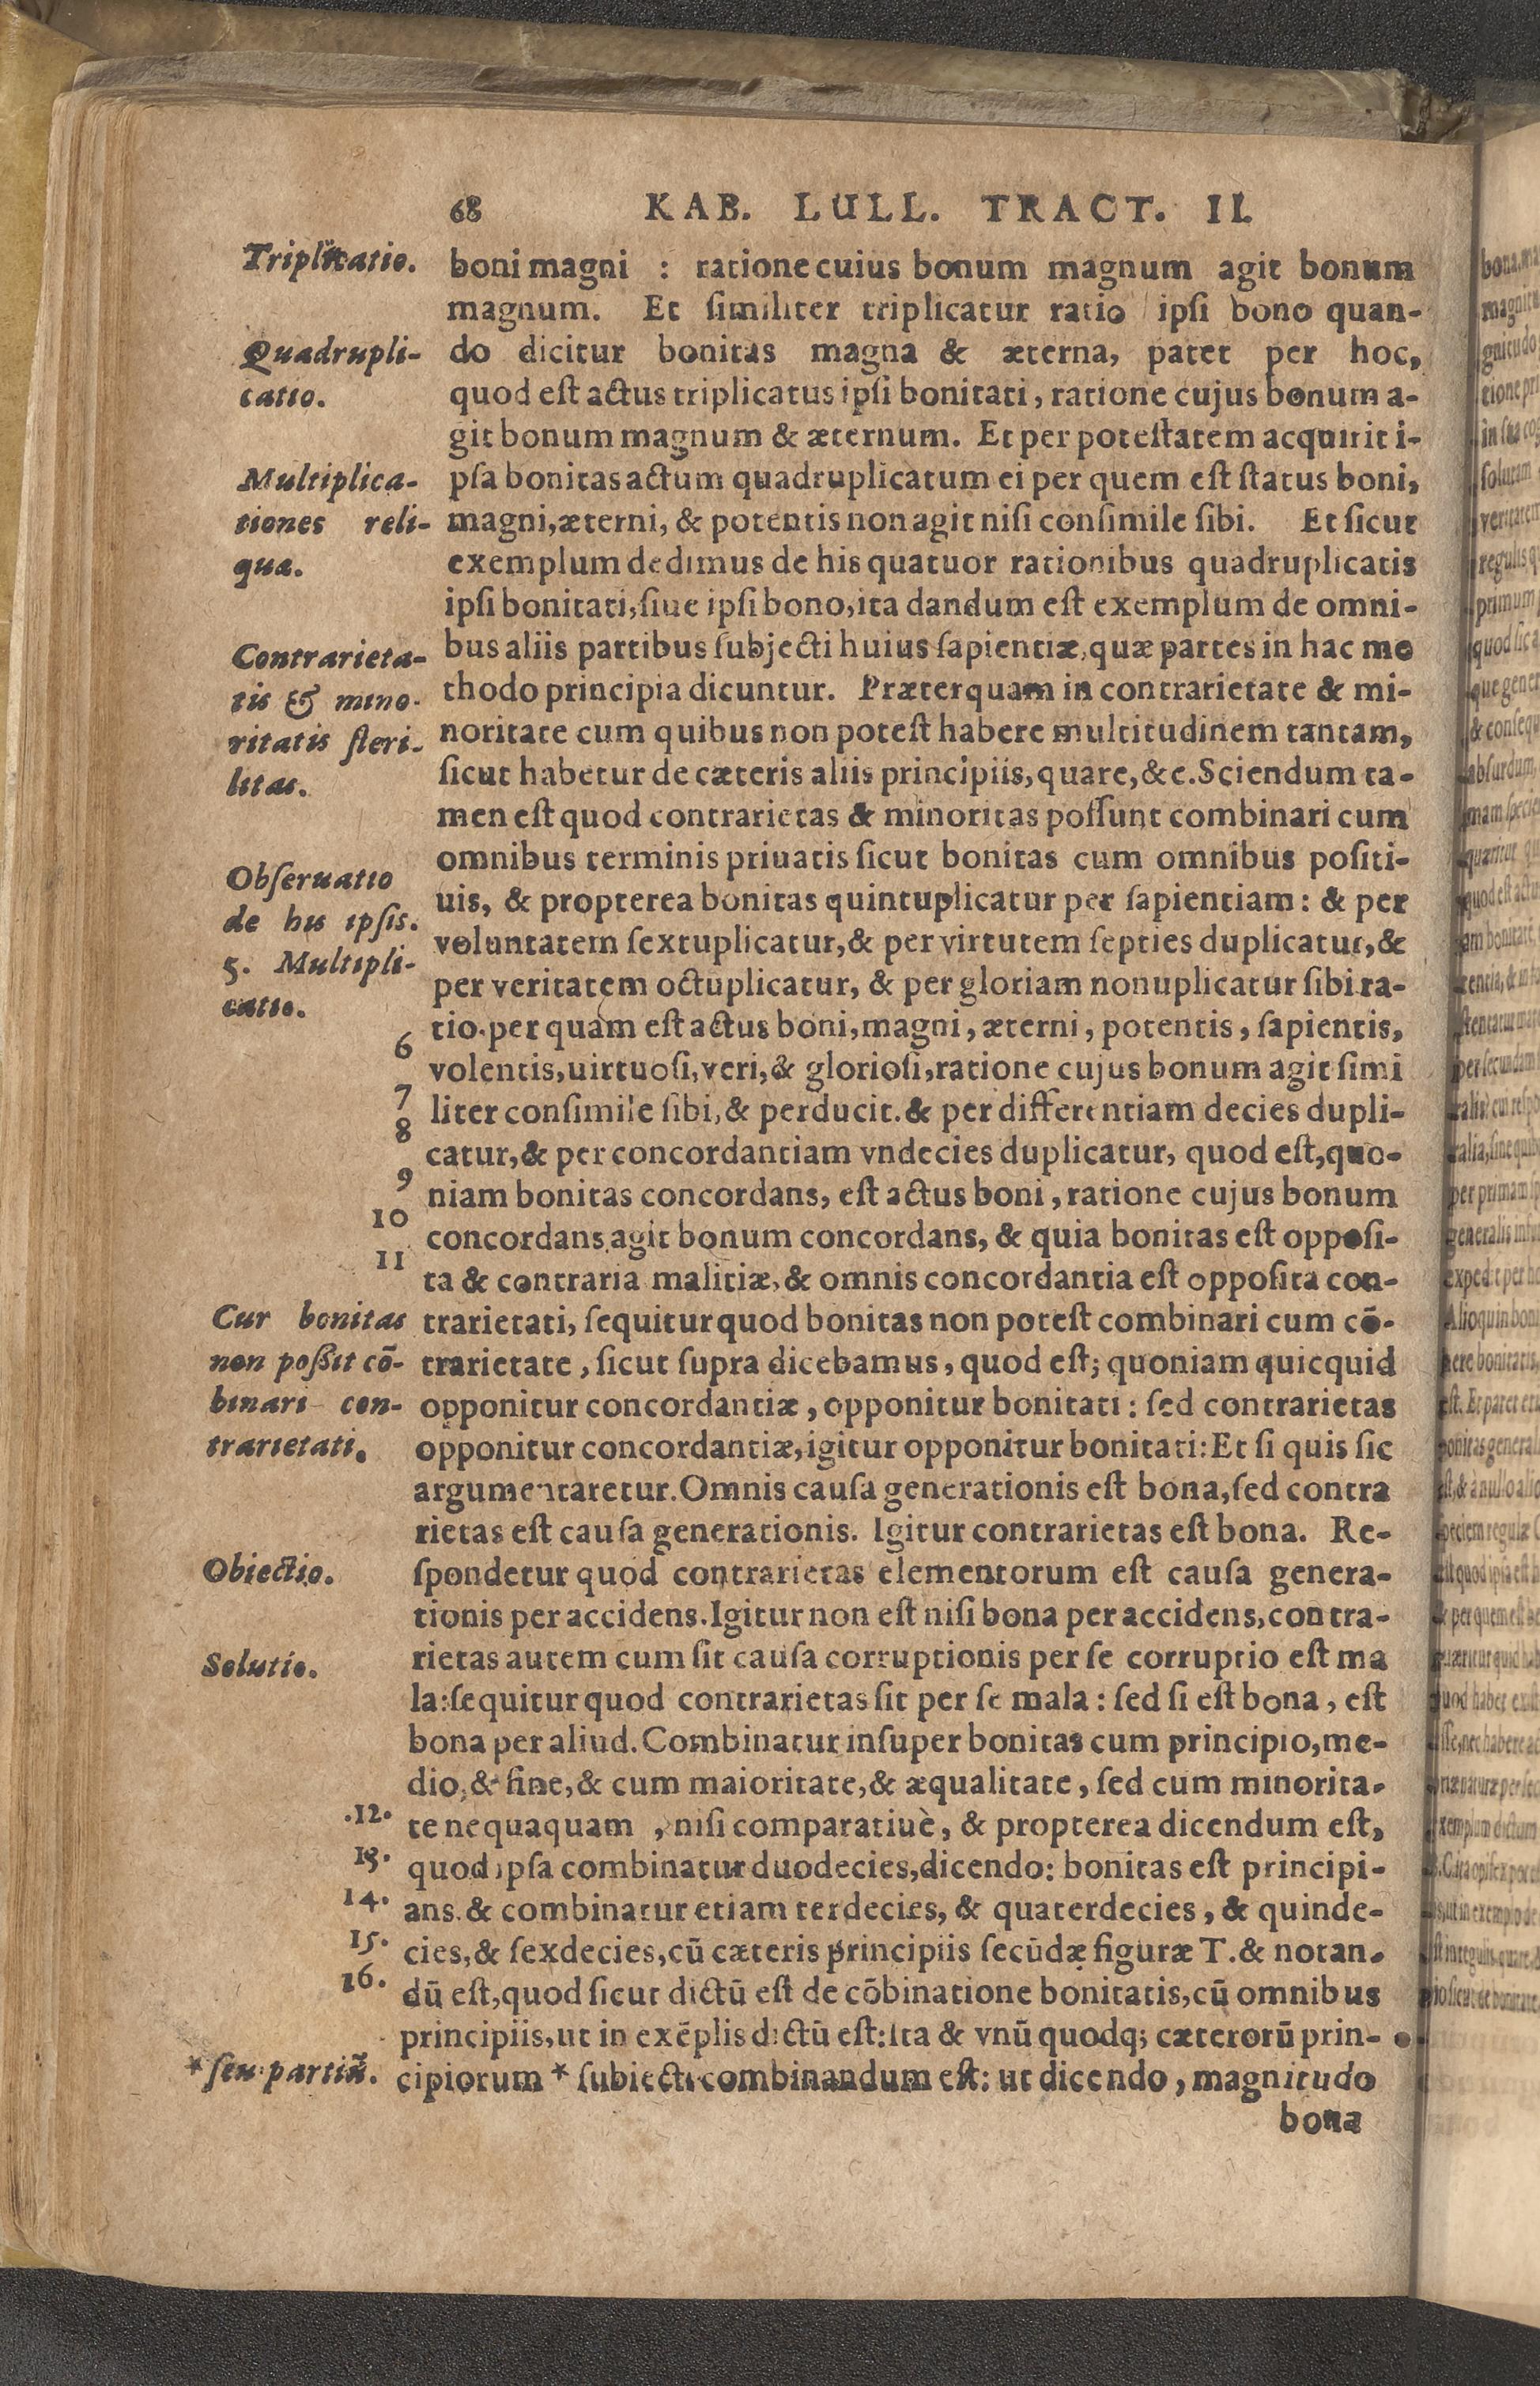 68 KAB. LULL. TRACT. II.
Triplicatio.
Quadrupli-
catio.
Multiplica-
tiones reli-
quæ.
Contrarieta-
tis & mino-
ritatis steri-
litas.
Obſeruatio
de his ipſis.
5. Multipli-
catio.
6
7
8
9
10
11
Cur bonitas
non poßit cō-
binari con-
trarietati.
Obiectio.
Solutio.
.12.
13.
14.
15.
16.
*ſeu partiū.
boni magni : ratione cuius bonum magnum agit bonum
magnum. Et ſimiliter triplicatur ratio ipſi bono quan-
do dicitur bonitas magna & æterna, patet per hoc,
quod eſt actus triplicatus ipſi bonitati, ratione cujus bonum a-
git bonum magnum & æternum. Et per poteſtatem acquirit i-
pſa bonitas actum quadruplicatum ei per quem eſt ſtatus boni,
magni, æterni, & potentis non agit niſi conſimile ſibi. Et ſicut
exemplum dedimus de his quatuor rationibus quadruplicatis
ipſi bonitati, ſiue ipſi bono, ita dandum eſt exemplum de omni-
bus aliis partibus ſubjecti huius ſapientiæ, quæ partes in hac me
thodo principia dicuntur. Præterquam in contrarietate & mi-
noritate cum quibus non poteſt habere multitudinem tantam,
ſicut habetur de cæteris aliis principiis, quare, &c. Sciendum ta-
men eſt quod contrarietas & minoritas poſſunt combinari cum
omnibus terminis priuatis ſicut bonitas cum omnibus poſiti-
uis, & propterea bonitas quintuplicatur per ſapientiam : & per
voluntatem ſextuplicatur, & per virtutem ſepties duplicatur, &
per veritatem octuplicatur, & per gloriam nonuplicatur ſibi ra-
tio. per quam eſt actus boni, magni, æterni, potentis, ſapientis,
volentis, uirtuoſi, veri, & glorioſi, ratione cujus bonum agit ſimi
liter conſimile ſibi, & perducit. & per differentiam decies dupli-
catur, & per concordantiam vndecies duplicatur, quod eſt, quo-
niam bonitas concordans, eſt actus boni, ratione cujus bonum
concordans agit bonum concordans, & quia bonitas eſt oppoſi-
ta & contraria malitiæ, & omnis concordantia eſt oppoſita con-
trarietati, ſequitur quod bonitas non poteſt combinari cum cō-
trarietate, ſicut ſupra dicebamus, quod eſt; quoniam quicquid
opponitur concordantiæ, opponitur bonitati : ſed contrarietas
opponitur concordantiæ, igitur opponitur bonitati: Et ſi quis ſic
argumentaretur. Omnis cauſa generationis eſt bona, ſed contra
rietas eſt cauſa generationis. Igitur contrarietas eſt bona. Re-
ſpondetur quod contrarietas elementorum eſt cauſa genera-
tionis per accidens. Igitur non eſt niſi bona per accidens, contra-
rietas autem cum ſit cauſa corruptionis per ſe corruptio eſt ma
la: ſequitur quod contrarietas ſit per ſe mala : ſed ſi eſt bona, eſt
bona per aliud. Combinatur inſuper bonitas cum principio, me-
dio, & fine, & cum maioritate, & æqualitate, ſed cum minorita-
te nequaquam , niſi comparatiuè, & propterea dicendum eſt,
quod ipſa combinatur duodecies, dicendo: bonitas eſt principi-
ans. & combinatur etiam terdecies, & quaterdecies, & quinde-
cies, & ſexdecies, cū cæteris principiis ſecūdæ figuræ T. & notan-
dū eſt, quod ſicut dictū eſt de cōbinatione bonitatis, cū omnibus
principiis, ut in exēplis dictū eſt: ita & vnū quodq; cæterorū prin-
cipiorum * ſubiecti combinandum eſt: ut dicendo, magnitudo
bona